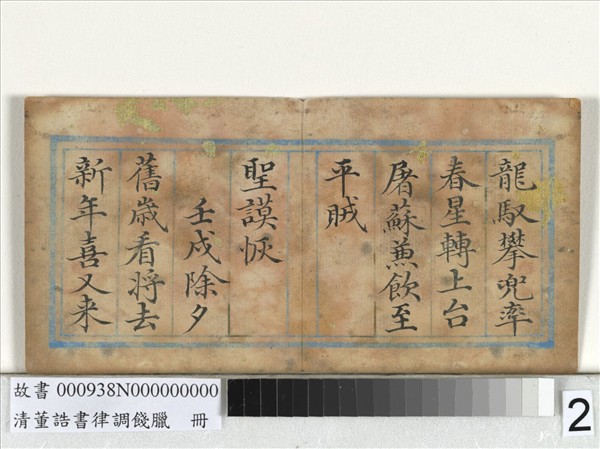 龍馭攀兜率
春星轉上台
屠蘇蒹飲至
平賊
聖謨恢
壬戌除夕
舊歲看將去
新年喜又来
故書 000938N000000000
清董誥書律調餞臘 冊
2